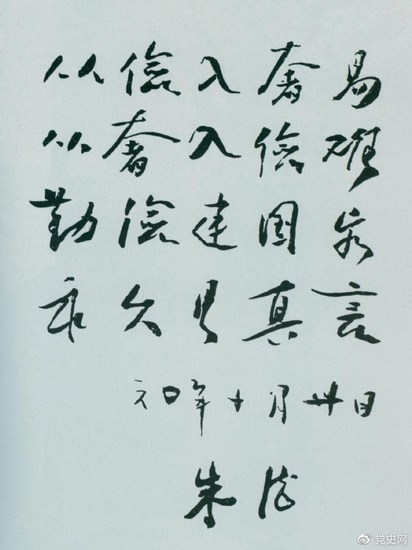 从俭入奢易
从奢入俭难
勤俭建国家
永久是真言
六〇年十月 日
朱德
党史网